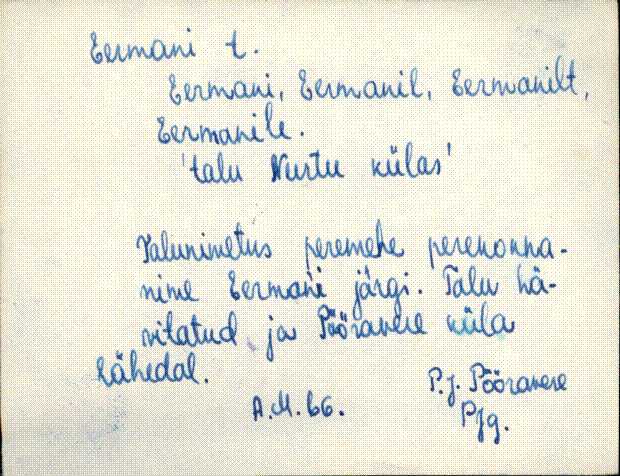 Eermani t.
Eermani, Eermanil, Eermanilt,
Eermanile.
'talu Nurtu külas'
Talunimetus peremehe perekonna-
nime Eermani järgi. Talu hä-
vitatud ja Pööravere küla
lähedal.
P.J. Pööravere
A.M. 66.
PJg.